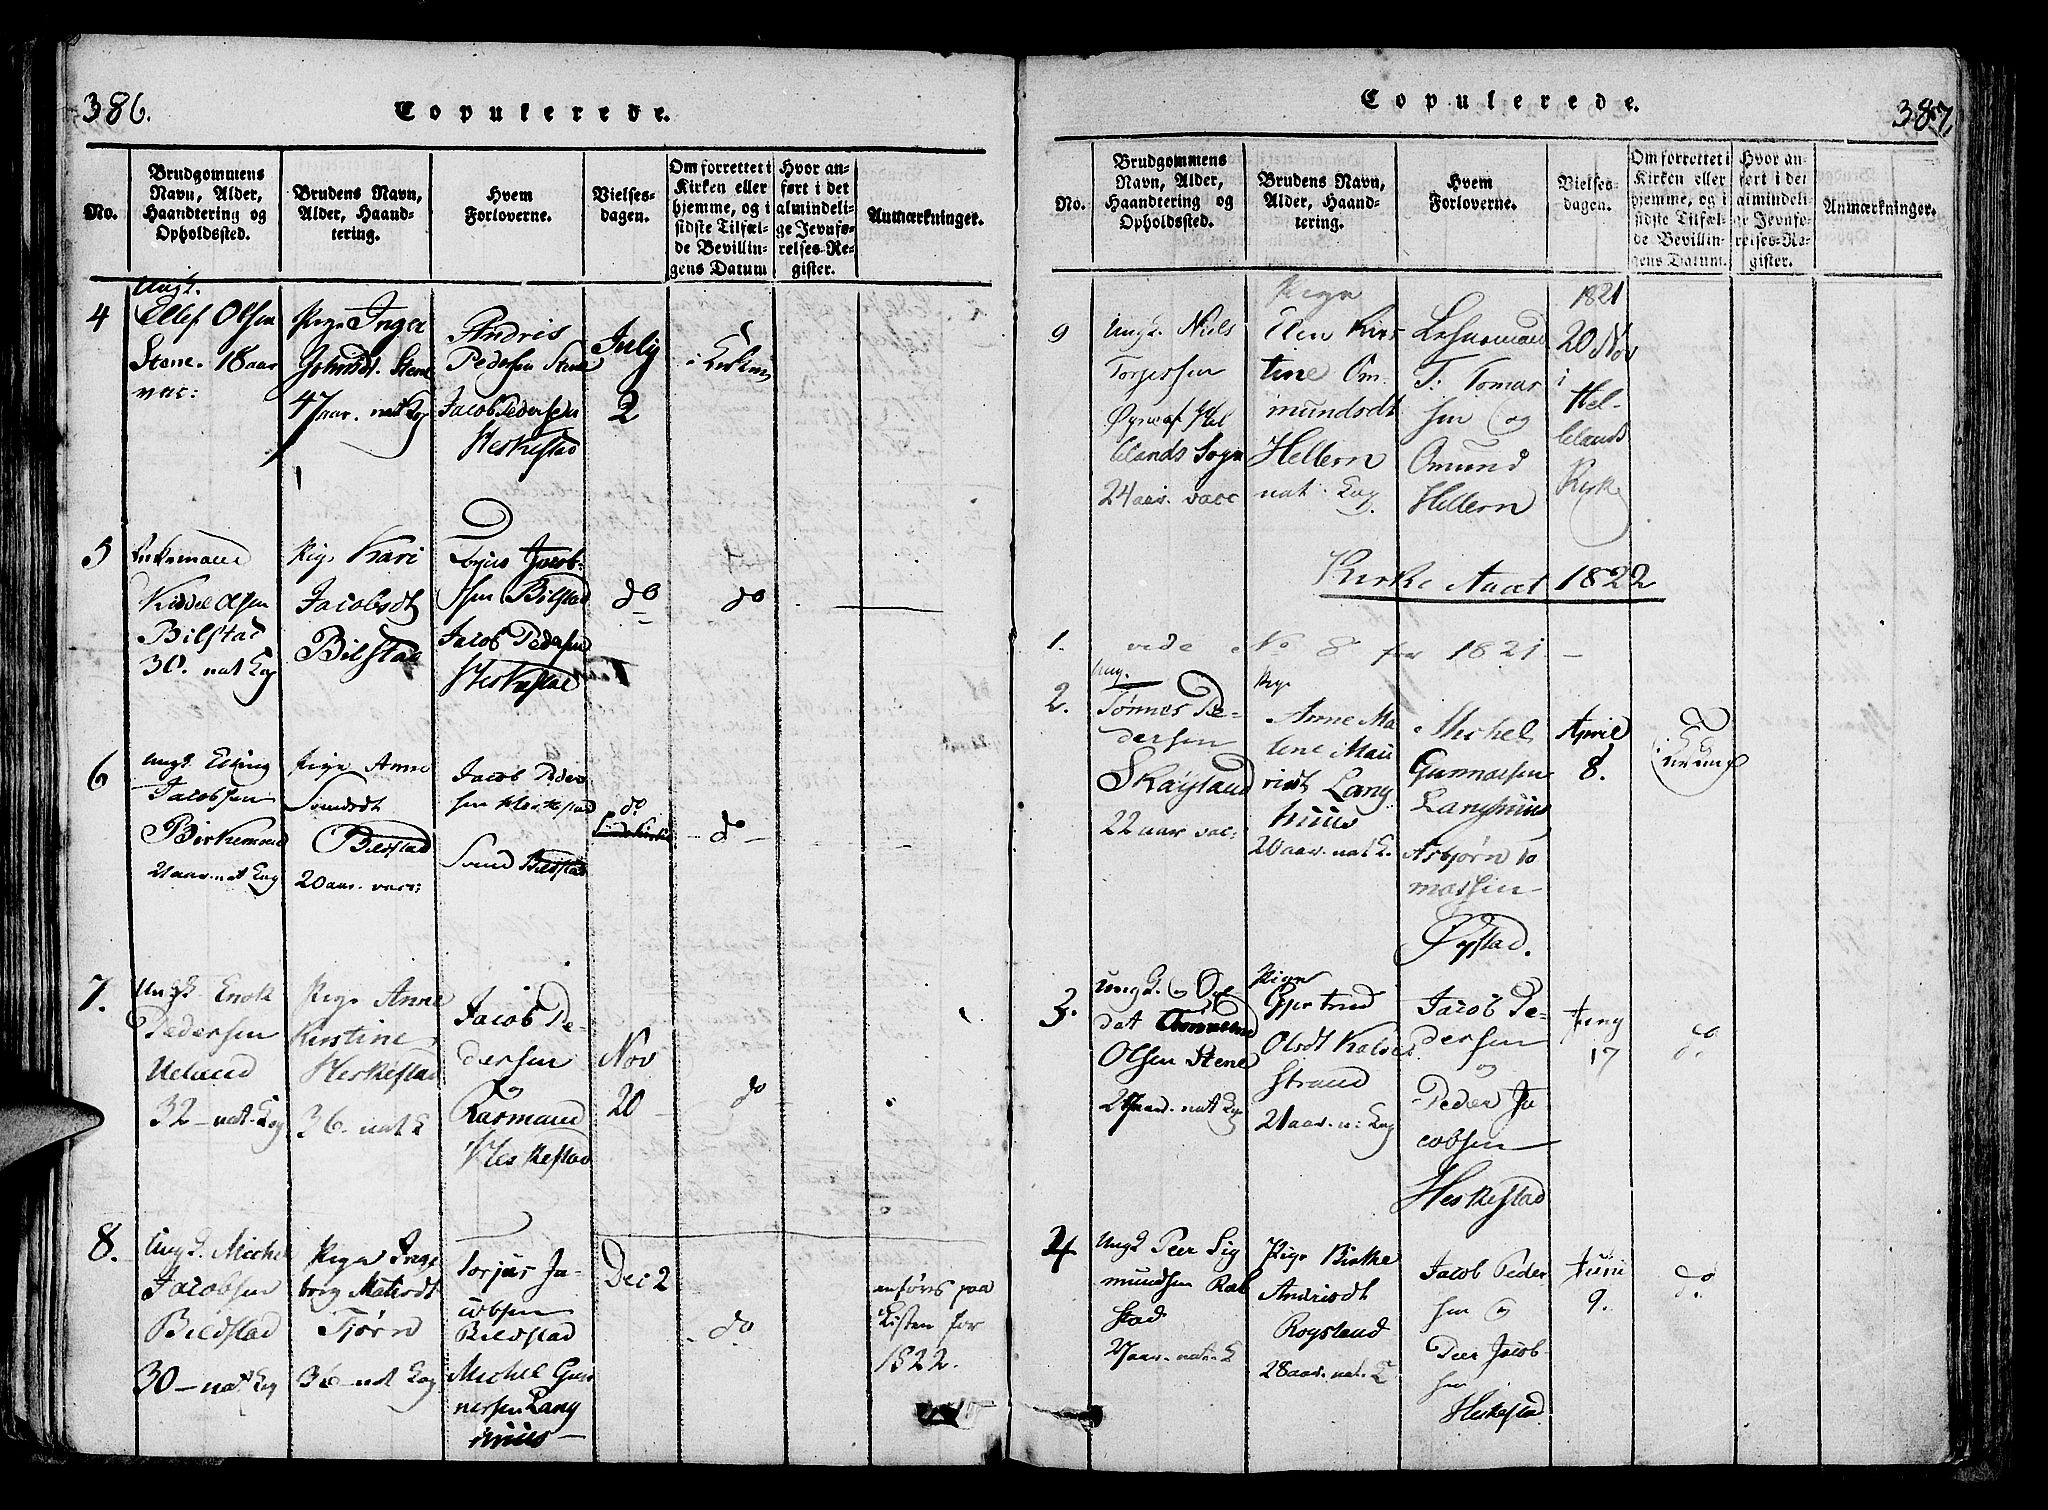 386.
Copulerede.
No.
Brudgommens
Navn, Alder,
Haandtering og
Opholdssted.
Brudens Navn,
Alder, Haand-
tering.
Hvem
Forloverne.
Vielses-
dagen.
Om forrettet i
Kirken eller
hjemme, og i
sidste Tilfæl-
de Bevillin-
gens Datum
Hvor an-
ført i det
almindeli-
ge Jevnfø-
relses-Re-
gister.
Anmærkninger.
4
Ungk.
Ellef Olsen
Stene. 18 aar
vac:
Pige Inger
Stene
47 aar. nat Kop
Andris
Pedersen Stene
Jacob Pedersen
Heskestad
July
2
i Kirken
5
Enkemand
Kiddel Olsen
Bilstad
30. nat Kop
Pige Kari
Jacobsdt
Bilstad
Torjus Jacob-
sen Bilstad
Jacob Pedersen
Heskestad
do
do
6
Ungk.
Jacobsen
Birkemoed
21 aar. nat Kop
Pige Anne
Svendsdt
Bilstad
20 aar. vacc:
Jacob Peder
sen Heskestad
Svend Bilstad
do
do
7.
Ungk Enok
Pedersen
Ueland
32 - nat. Kop
Pige Anne
Kirstine
Heskestad
36. nat K
Jacob Pe-
dersen
og
Rasmund
Heskestad
Nov
20
do
8.
Ungk. Michel
Jacobsen
Bilstad
30 - nat Kop
Pige Inge
borg Matisdt
Tjørn
36 - nat Kop
Torjus Ja-
cobsen
Bilstad
Michel Gun
nersen Lang
huus -
Dec 2
do
anføres paa
Listen for
1822.
387.
Copulerede.
No.
Brudgommens
Navn, Alder,
Haandtering og
Opholdssted.
Brudens Navn,
Alder, Haand-
tering.
Hvem
Forloverne.
Vielses-
dagen.
Om forrettet i
Kirken eller
hjemme, og i
sidste Tilfæl-
de Bevillin-
gens Datum.
Hvor an-
ført i det
almindeli-
ge Jevnfø-
relses-Re-
gister.
Anmærkninger.
9
Ungk. Niels
Torgersen
Hel
lelands Sogn
24 aar. vacc
Pige
Elen Kirs
tine Om
mundsdt
Hellern
nat. Kop.
Lensmand
T: Tomas
sen og
Omund
Hellern
1821
20 Nov
i
Hel-
lelands
Kirke
Kirke Aaret 1822
1. vide No 8 for 1821 -
2.
Ung.
Tønnes Pe-
dersen
Skaýland
22 aar vac:
Pige
Anne Ma
lene Mau
ridt Lang
huus
20 aar. nat K.
Michel
Gunnarsen
Langhuus
Asbjørn To
massen -
Øystad.
April
8.
i Kirken
3.
Ungk. og
dat
Olsen Stene
27 aar. nat Kop
Pige
Gjertrud
Olsdt Kalve
Strand
21 aar. n: Kop
Jacob Pe-
dersen
og
Peder Ja
cobsen
Heskestad
17
do.
4
Ungk Peer Sig
mundsen
stad
27 aar. nat. K
Pige Birthe
Andrisdt
Rogstand
28 aar. nat. K
Jacob Peder
sen og
Peer Jacob
sen
Heskestad
Juni
9.
do.